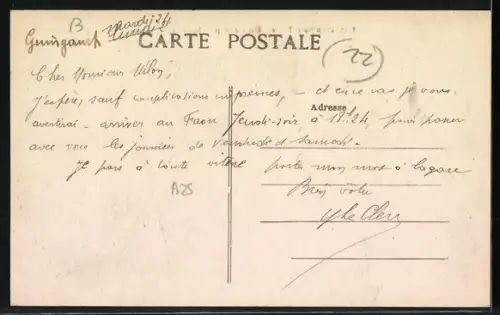 B
Guingamp
mardi 24
CARTE POSTALE
22
Cher Monsieur Milon,
J'espère, sauf complications imprévues, – et en ce cas je vous
Adresse
avertirai – arriver au Faou Jeudi soir, à 18h24, pour passer
avec vous les journées de Vendredi et Samedi.
Je pars à toute vitesse porter mon mot à la gare
Bien vôtre
Y Le Clerc
A25